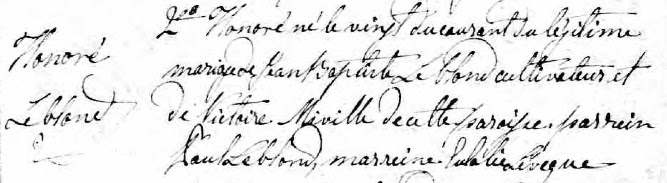 2° Honoré né le vingt du courant du légitime
Honoré
mariage de Jean Baptiste Leblond cultivateur et
Leblond
de Victoire Miville de cette paroisse. parrein
Paul Leblond, marreine Eulalie Levêque